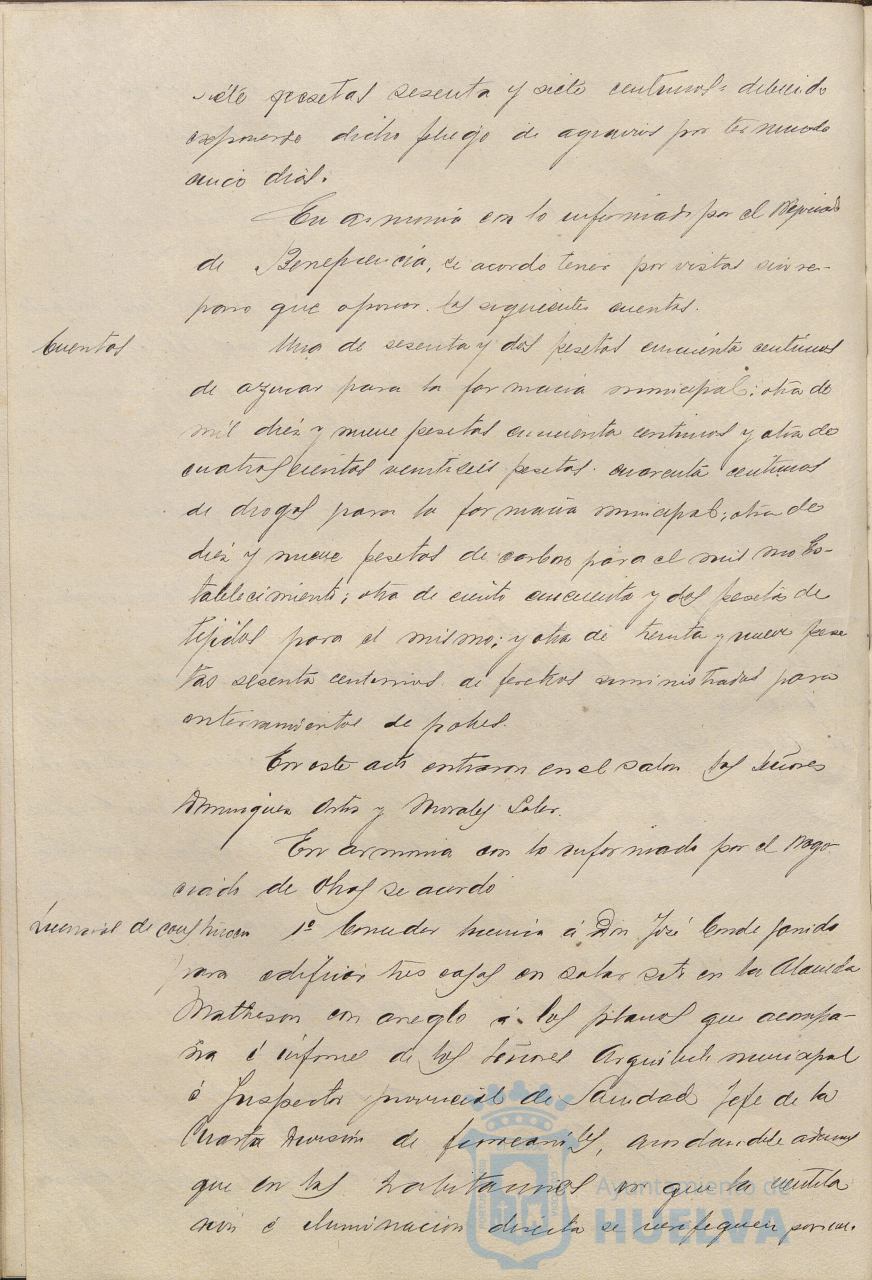 siete pesetas sesenta y siete centimos debiendo
exponerse dicho pliego de agravios por termino de
cinco dias.
En armonia con lo informado por el Negociado
de Beneficencia, se acordo tener por vistas sin re-
paro que oponer las siguientes cuentas.
Cuentas
Una de sesenta y dos pesetas cincuenta centimos
de azucar para la farmacia municipal; otra de
mil diez y nueve pesetas cincuenta centimos y otra de
cuatrocientas veintiseis pesetas cuarenta centimos
de drogas para la farmacia municipal; otra de
diez y nueve pesetas de carbon para el mismo Es-
tablecimiento; otra de ciento cincuenta y dos pesetas de
tejidos para el mismo; y otra de treinta y nueve pese
tas sesenta centimos de feretros suministrados para
enterramientos de pobres.
En este acto entraron en el salon los Señores
Dominguez Ortiz y Morales Soler.
En armonia con lo informado por el Nego-
ciado de Obras se acordo
Licencias de construccion
1º Conceder licencia á Don José Conde Garrido
para edificar tres casas en solar sito en la Alameda
Matheson con arreglo á los planos que acompa-
ña é informes de los Señores Arquitecto municipal
é Inspector provincial de Sanidad Jefe de la
Cuarta Division de ferrocarriles, acordandole ademas
que en las habitaciones en que la ventila
cion é iluminacion directa se verifiquen por
Ayuntamiento de
HUELVA